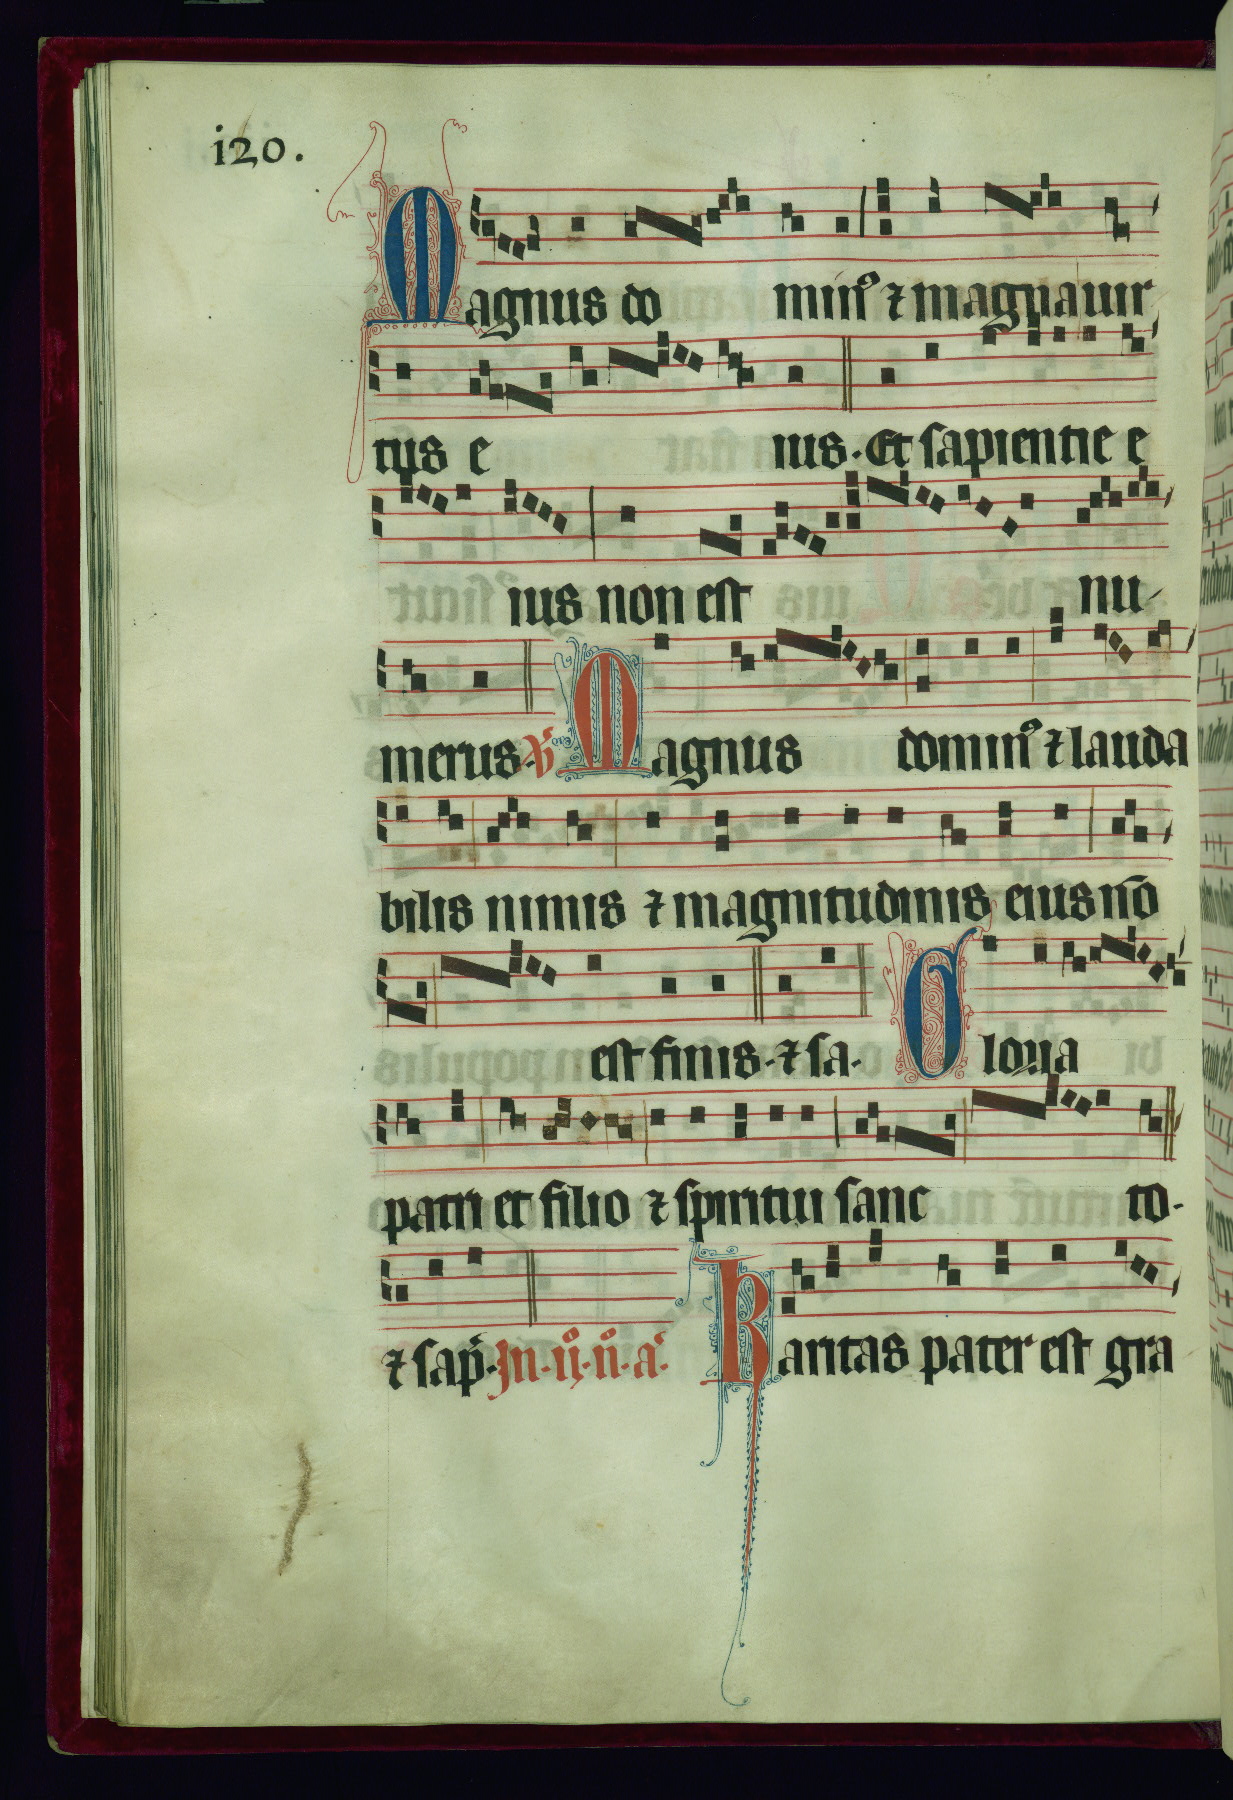 i20.
Magnus do minꝰ ⁊ magna uir
tus e ius. Et sapientie e
ius non est nu
merus. V̓ Magnus dominꝰ ⁊ lauda
bilis nimis ⁊ magnitudinis eius nō
est finis. ⁊ sa. Gloria
patri et filio ⁊ spiritui sanc to.
⁊ sap̄. In .ij. n̊. a.̓ Karitas pater est gra